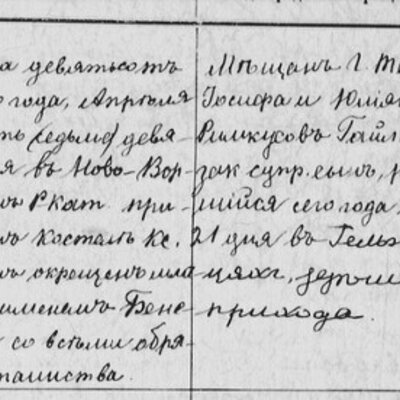 а девятьсотъ
года, Апрѣля
ть (седьмо) девя-
я въ Ново-Вор-
Р Кат. при-
костелѣ Кс.
окрещенъ мла
именемъ Бене-
со всѣми обря-
таинства.
Мѣщанъ г. Т
Іосифа и Юлія
Римкусовъ Гайл
зак супр. сынъ, р
шійся сего года
21 дня въ Гельз
цяхъ,
прихода.